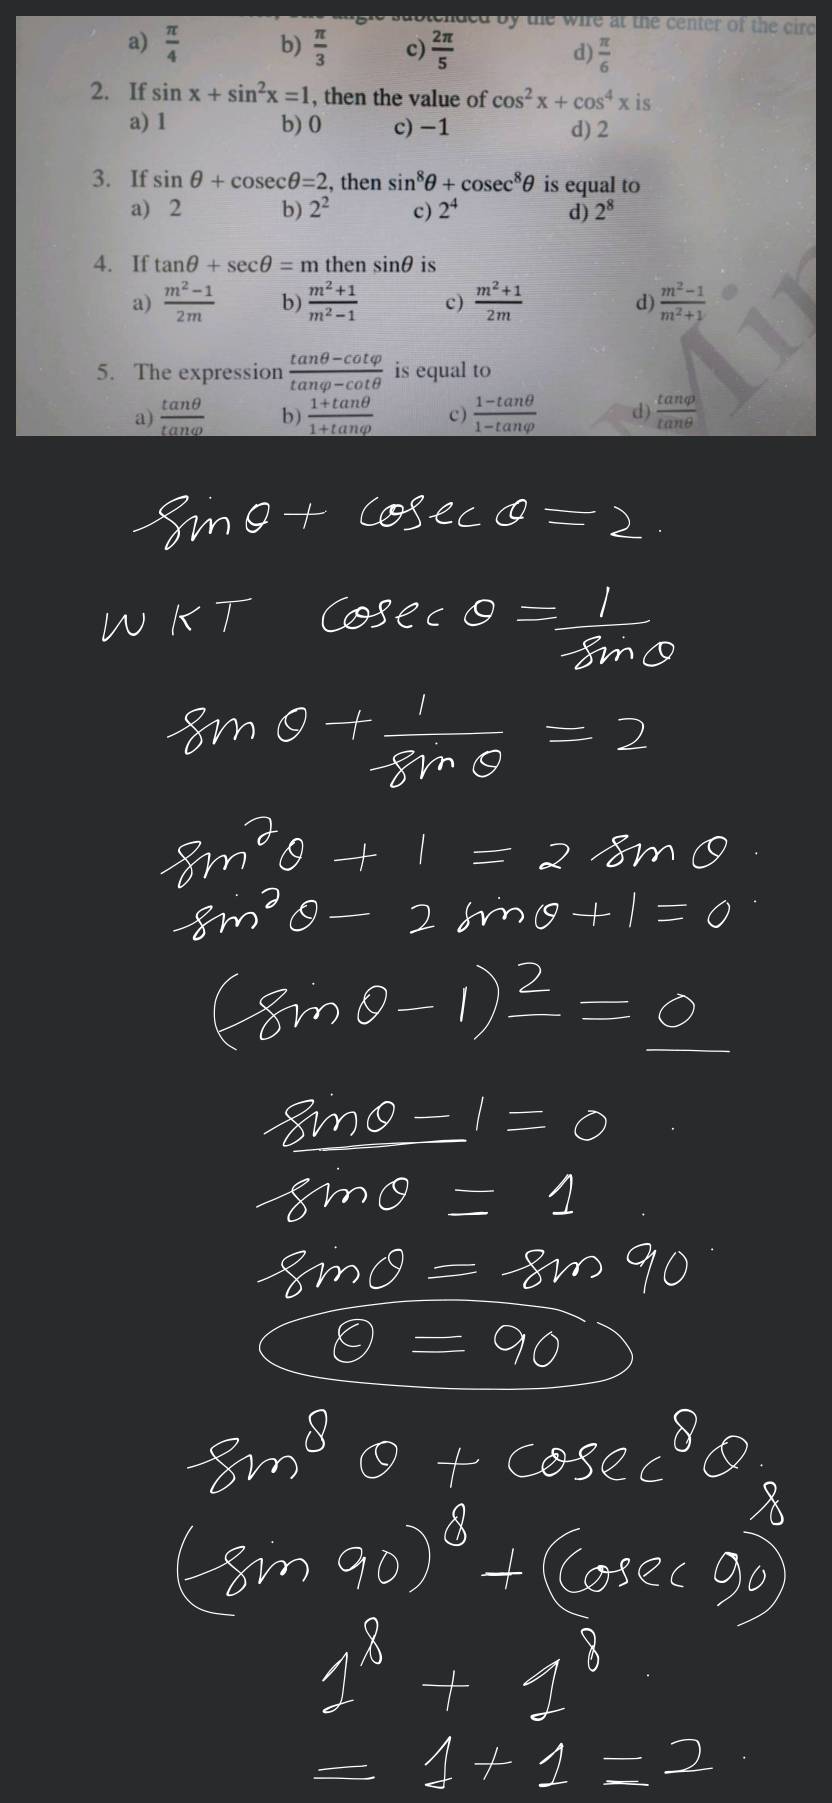 angle subtended by the wire at the center of the circ
a) π/4 b) π/3 c) 2π/5 d) π/6
2. If sin x + sin²x =1, then the value of cos² x + cos⁴ x is
a) 1 b) 0 c) −1 d) 2
3. If sin θ + cosecθ=2, then sin⁸θ + cosec⁸θ is equal to
a) 2 b) 2² c) 2⁴ d) 2⁸
4. If tanθ + secθ = m then sinθ is
a) m²−1/2m b) m²+1/m²−1 c) m²+1/2m d) m²−1/m²+1
5. The expression tanθ−cotφ/tanφ−cotθ is equal to
a) tanθ/tanφ b) 1+tanθ/1+tanφ c) 1−tanθ/1−tanφ d) tanφ/tanθ
sin θ + cosec θ = 2.
WKT cosec θ = 1/sin θ
sin θ + 1/sin θ = 2
sin² θ + 1 = 2 sin θ.
sin² θ − 2 sin θ + 1 = 0
(sin θ − 1)² = 0
sin θ − 1 = 0
sin θ = 1
sin θ = sin 90
θ = 90
sin⁸ θ + cosec⁸ θ.
(sin 90)⁸ + (cosec 90)⁸
1⁸ + 1⁸
= 1 + 1 = 2.